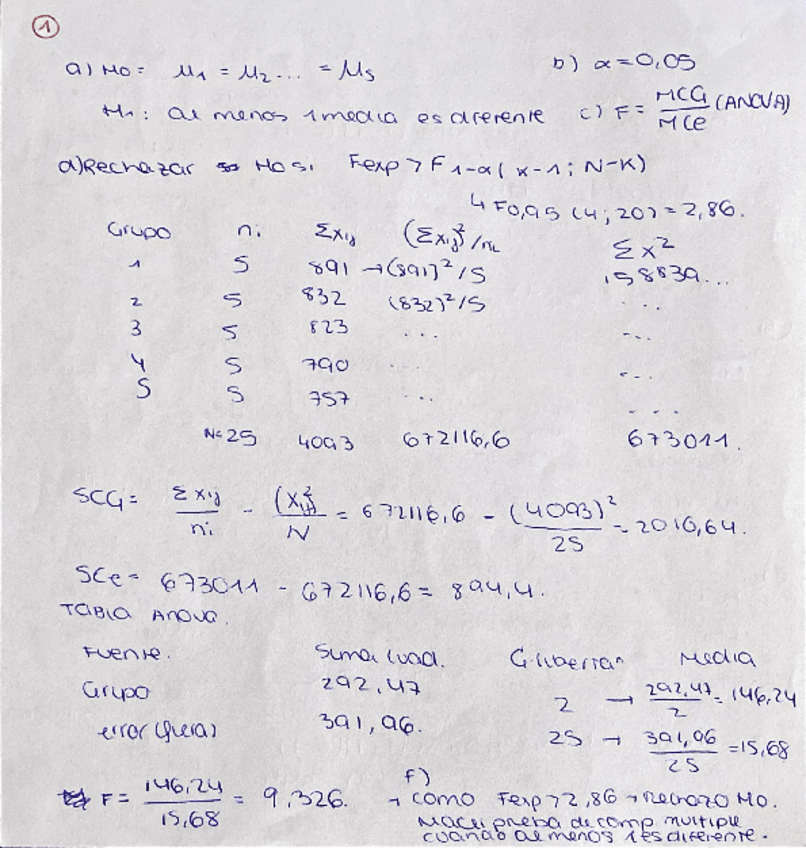 1
a) Ho = μ1 = μ2 ... = μ5
b) α = 0,05
H1: al menos 1 media es diferente
c) F = MCG/MCe (ANOVA)
d) Rechazar Ho si Fexp > F 1-α ( K-1 ; N-K)
↳ F0,95 (4; 20) = 2,86.
Grupo ni Σxij (Σxij)²/ni Σx²
1 5 891 → (891)²/5 158839...
2 5 832 (832)²/5 ...
3 5 823 ... ...
4 5 790 ... ...
5 5 757 ... ...
N=25 4093 672116,6 673011.
SCG = Σxij/ni - (xij)²/N = 672116,6 - (4093)²/25 = 2010,64.
SCe = 673011 - 672116,6 = 894,4.
TABLA ANOVA.
Fuente. Suma cuad. G. libertad Media
Grupo 292,47 2 → 292,47/2 = 146,24
error (fuera) 391,96. 25 → 391,96/25 = 15,68
F = 146,24/15,68 = 9,326.
F)
→ como Fexp > 2,86 → Rechazo Ho.
Hacer prueba de comp multiple
cuando al menos 1 es diferente.